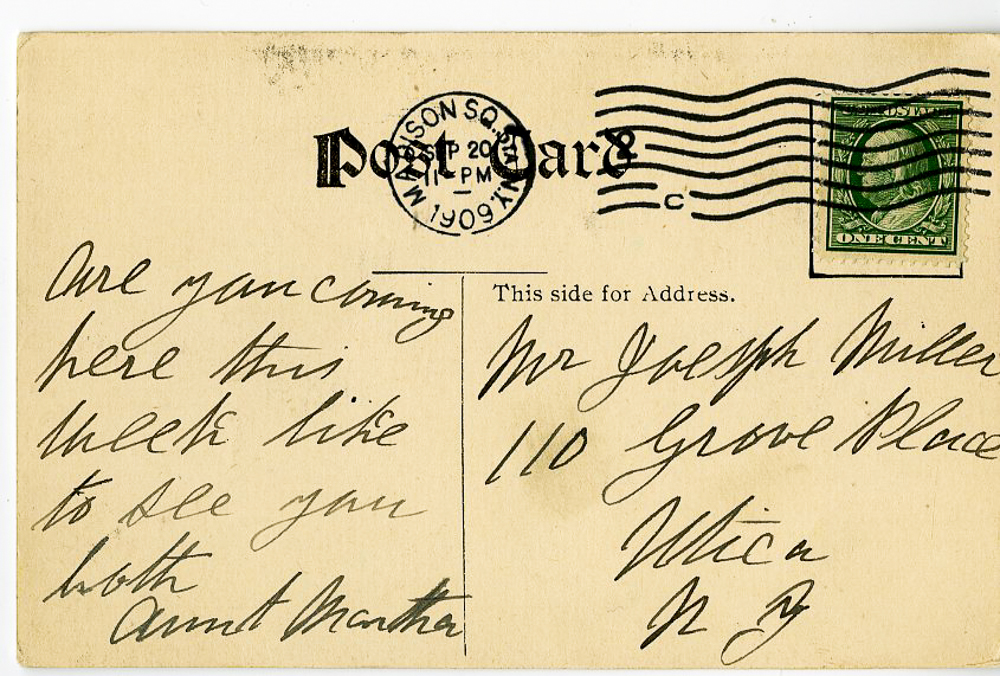 Post Card
MADISON SQ. STA. N.Y.
SEP 20
11 - PM
1909
C
ONE CENT
This side for Address.
Are you coming
here this
week like
to see you
both
Aunt Martha
Mr Joesph Miller
110 Grove Place
Utica
N Y